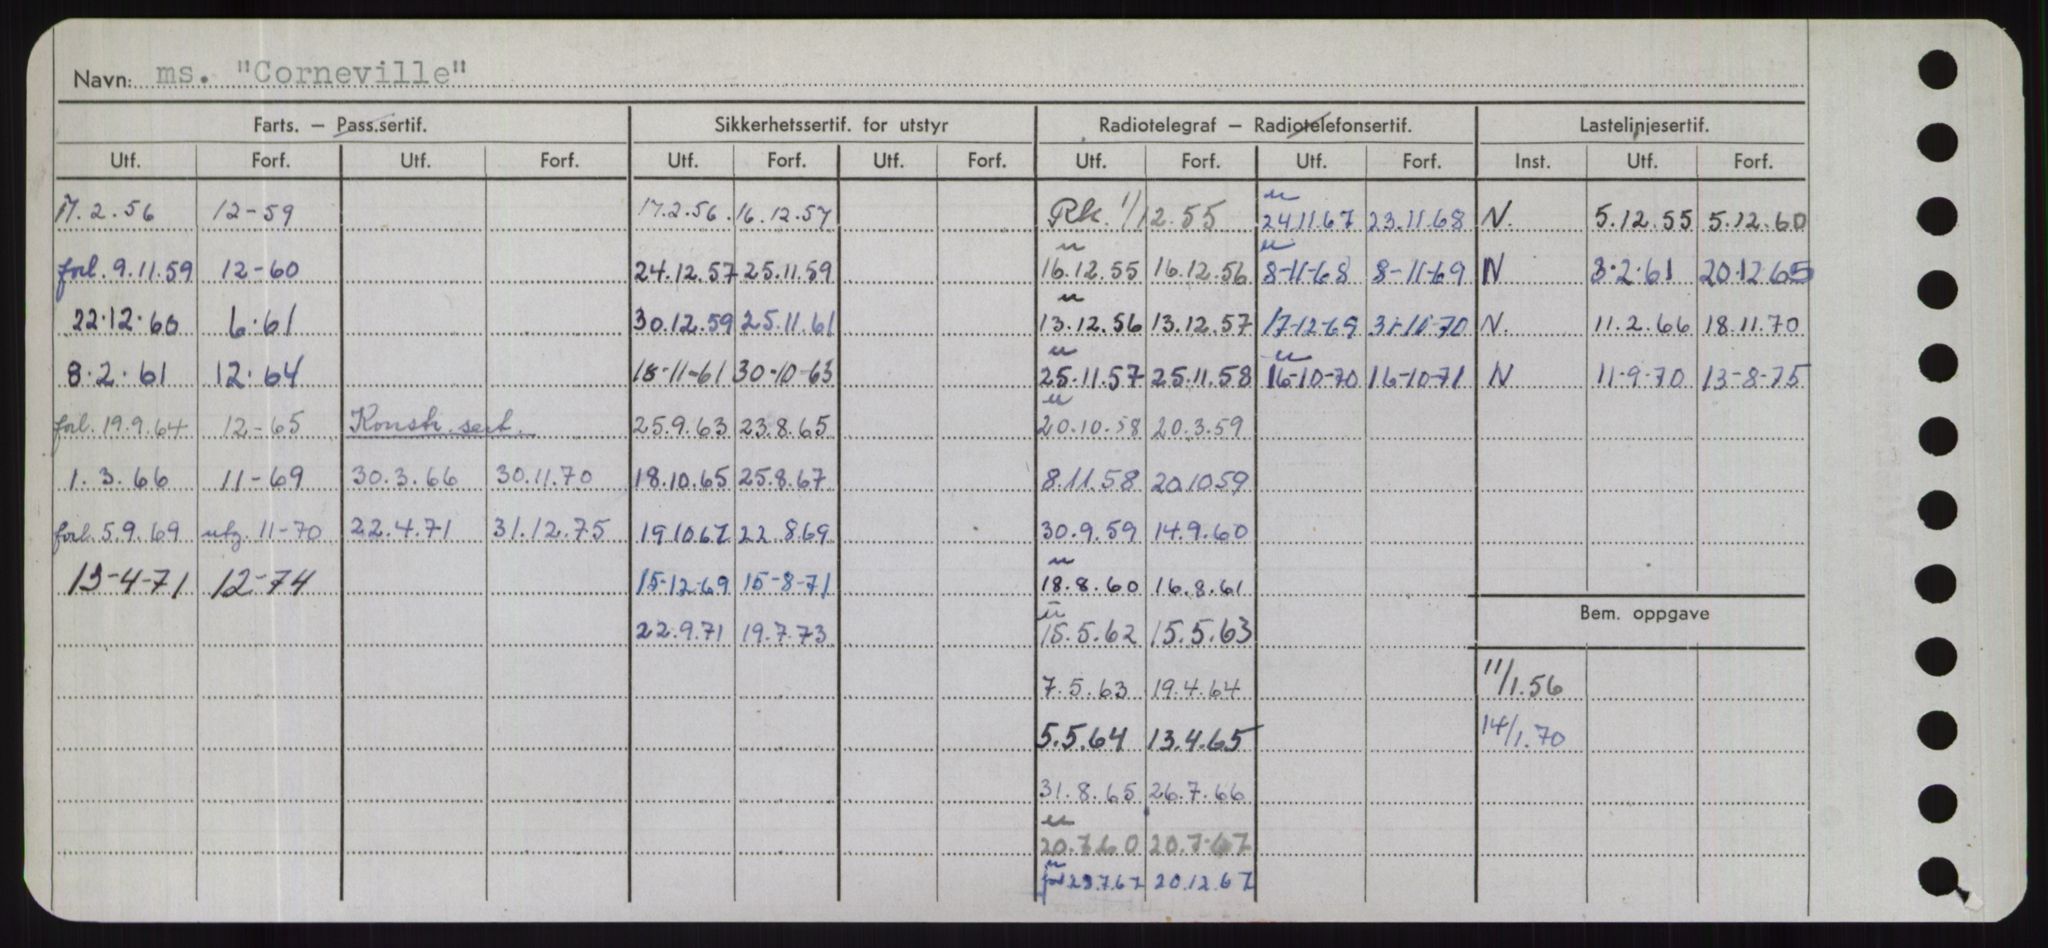 Navn: ms. "Corneville"
Farts. – Pass.sertif. Sikkerhetssertif. for utstyr Radiotelegraf – Radiotelefonsertif. Lastelinjesertif.
Utf. Forf. Utf. Forf. Utf. Forf. Utf. Forf. Utf. Forf. Utf. Forf. Inst. Utf. Forf.
17.2.56 12-59 17.2.56 16.12.57 Rk. 1/12.55 u 24.11.67 23.11.68 N. 5.12.55 5.12.60
forl. 9.11.59 12-60 24.12.57 25.11.59 u 16.12.55 16.12.56 u 8-11-68 8-11-69 N 8.2.61 20.12.65
22.12.60 6.61 30.12.59 25.11.61 u 13.12.56 13.12.57 17-12-69 31-10-70 N. 11.2.66 18.11.70
8.2.61 12.64 18-11-61 30-10-63 u 25.11.57 25.11.58 u 16-10-70 16-10-71 N 11-9-70 13-8-75
forl. 19.9.64 12-65 Konstr. sert. 25.9.63 23.8.65 u 20.10.58 20.3.59
1.3.66 11-69 30.3.66 30.11.70 18.10.65 25.8.67 8.11.58 20.10.59
forl. 5.9.69 utg. 11-70 22.4.71 31.12.75 19.10.67 22.8.69 30.9.59 14.9.60
13-4-71 12-74 15-12-69 15-8-71 u 18.8.60 16.8.61
Bem. oppgave
22.9.71 19.7.73 u 15.5.62 15.5.63
7.5.63 19.4.64 11/1.56
5.5.64 13.4.65 14/1.70
31.8.65 26.7.66
u 20.7.60 20.7.67
u 20.12.67